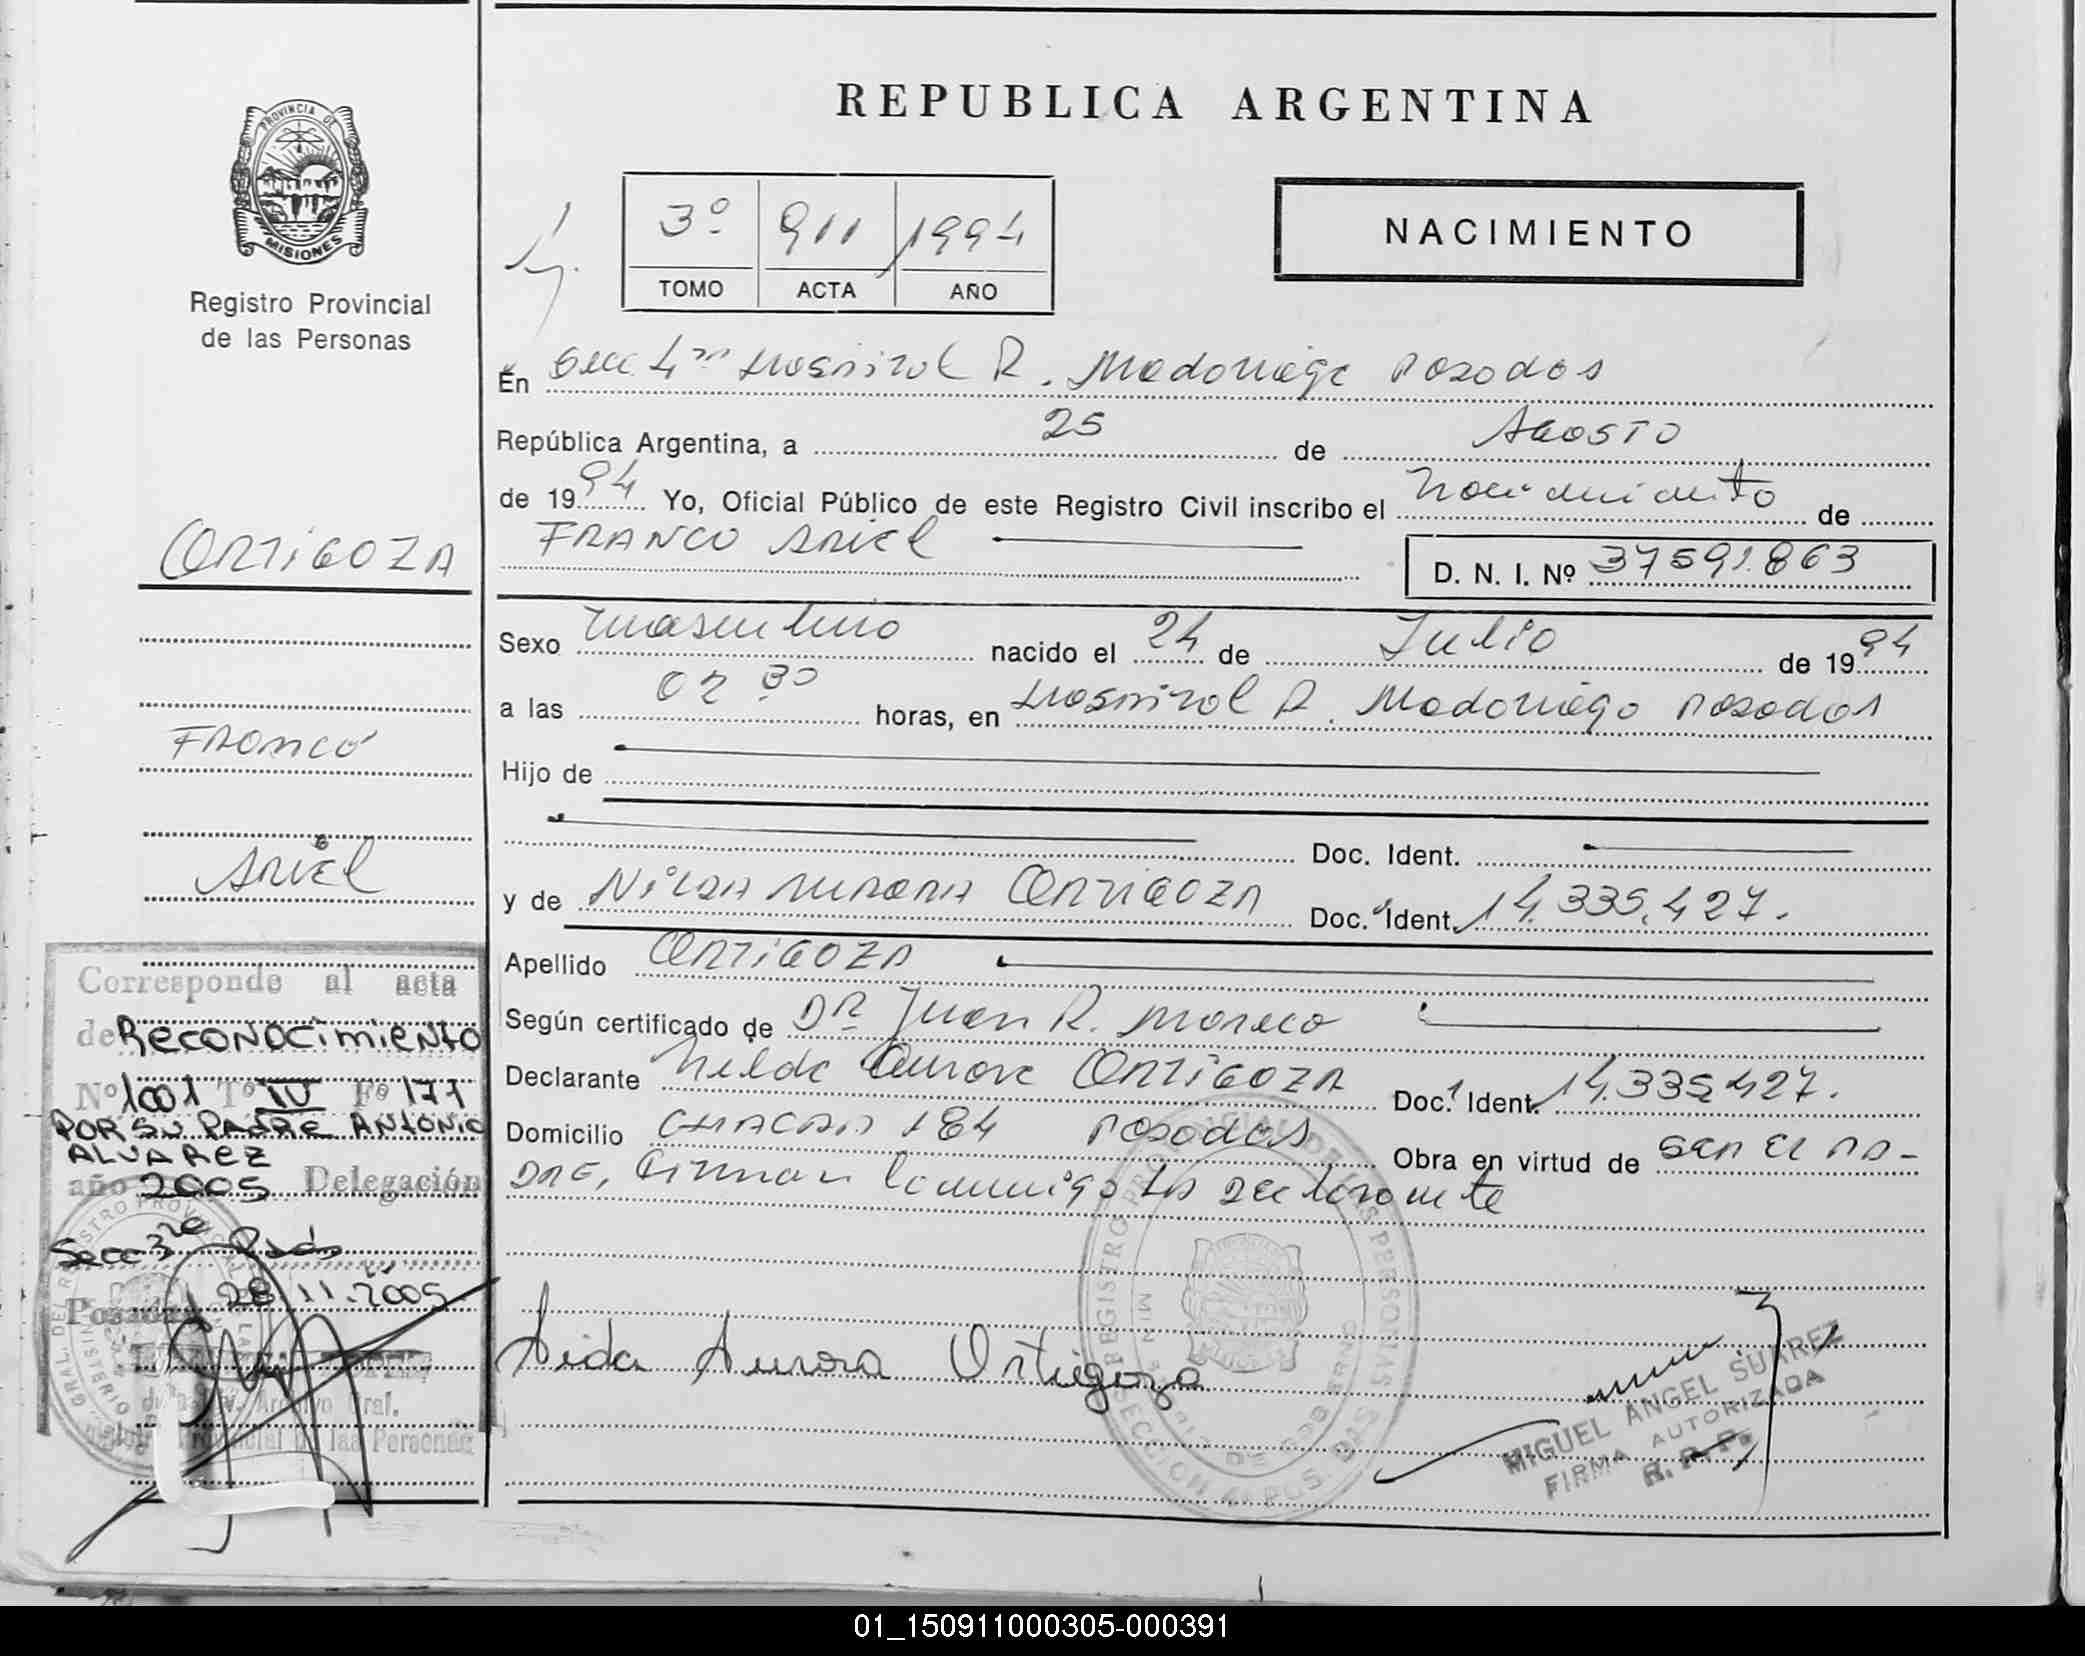 REPUBLICA ARGENTINA
PROVINCIA DE
MISIONES
Registro Provincial
de las Personas
3º 911 1994
TOMO ACTA AÑO
NACIMIENTO
En Secc 4ta Hospital R. Madariaga Posadas
República Argentina, a 25 de Agosto
de 1994 Yo, Oficial Público de este Registro Civil inscribo el nacimiento de
FRANCO ARIEL
D. N. I. Nº 37591.863
Sexo masculino nacido el 24 de Julio de 1994
a las 02 30 horas, en Hospital R. Madariaga Posadas
Hijo de
Doc. Ident.
y de ORTIGOZA Doc. Ident. 14.335.427.
Apellido ORTIGOZA
Según certificado de DR Juan R.
Declarante ORTIGOZA Doc. Ident. 14.335.427.
Domicilio 184 Posadas Obra en virtud de SER EL PA-
DRE, Firman conmigo la declarante
Aida Aurora Ortigoza
MIGUEL ANGEL SUAREZ
FIRMA AUTORIZADA
R. P. P.
ORTIGOZA
FRANCO
ARIEL
Corresponde al acta
de RECONOCIMIENTO
Nº 1001 Tº IV Fº 171
POR SU PADRE ANTONIO
ALVAREZ
año 2005 Delegación
Secc 3ra Pdas
Posadas, 28.11.2005
Archivo Gral.
Provincial de las Personas
01_150911000305-000391